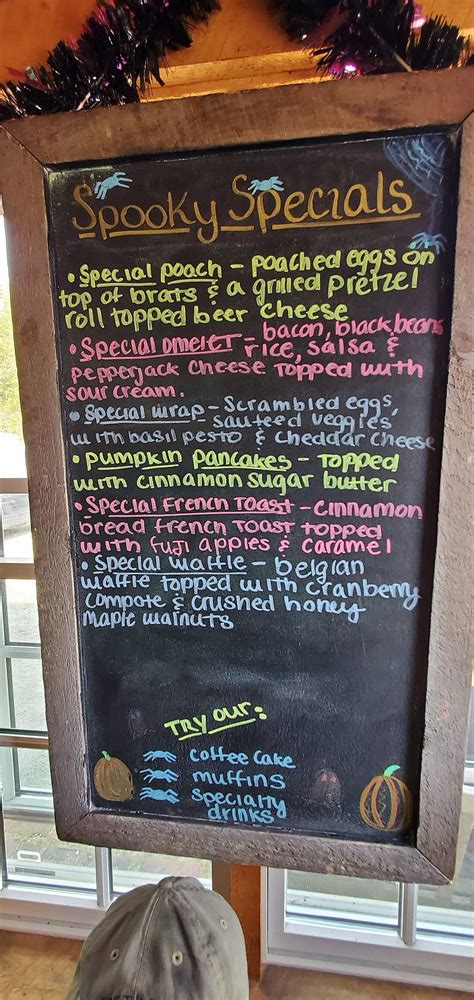 Spooky Specials
• Special poach - poached eggs on
top of brats & a grilled pretzel
roll topped beer cheese
• Special omelet - bacon, black beans
rice, salsa &
pepperjack cheese topped with
sour cream.
• Special wrap - Scrambled eggs,
- sauteed veggies
with basil pesto & cheddar cheese
• pumpkin pancakes - topped
with cinnamon sugar butter
• Special French Toast - cinnamon
bread french toast topped
with fuji apples & caramel
• Special waffle - belgian
waffle topped with cranberry
compote & crushed honey
maple walnuts
Try our:
coffee cake
muffins
specialty
drinks